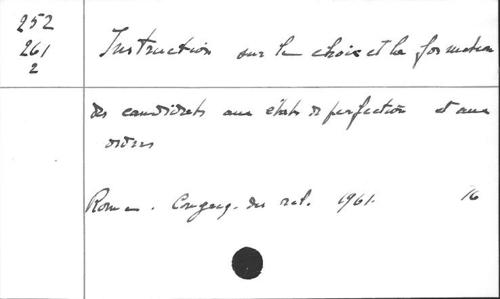 252
261
2
Instruction sur le choix et la formation
des candidats aux états de perfection et aux
ordres
Rome. Congreg. des rel. 1961. 16